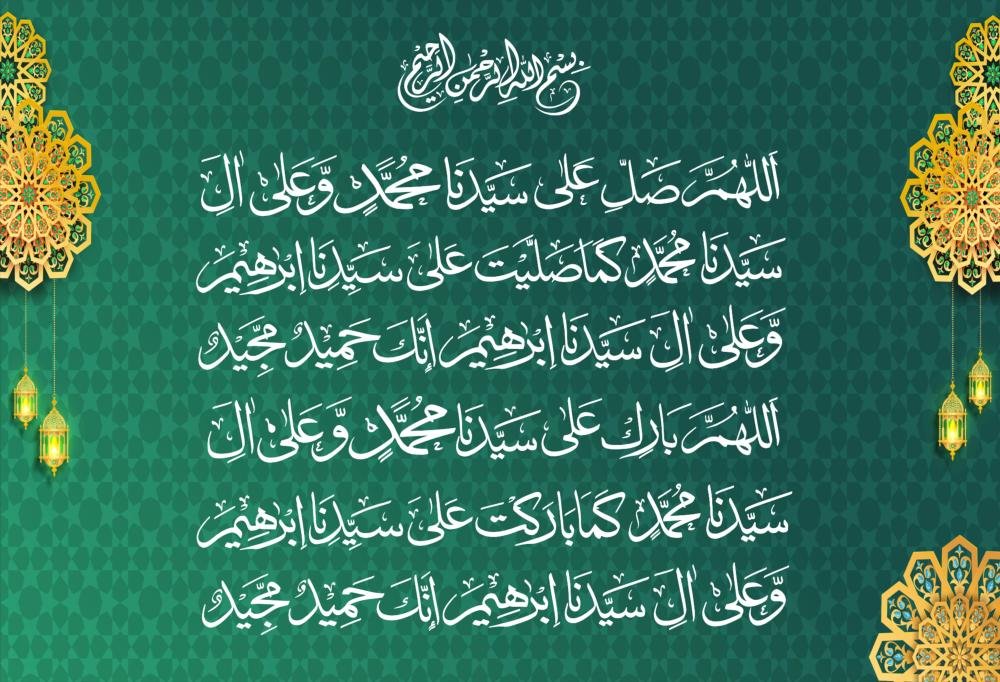 بِسْمِ اللهِ الرَّحْمٰنِ الرَّحِيْمِ
اَللّٰهُمَّ صَلِّ عَلٰى سَيِّدِنَا مُحَمَّدٍ وَّعَلٰى اٰلِ
سَيِّدِنَا مُحَمَّدٍ كَمَا صَلَّيْتَ عَلٰى سَيِّدِنَا اِبْرٰهِيْمَ
وَّعَلٰى اٰلِ سَيِّدِنَا اِبْرٰهِيْمَ اِنَّكَ حَمِيْدٌ مَّجِيْدٌ
اَللّٰهُمَّ بَارِكْ عَلٰى سَيِّدِنَا مُحَمَّدٍ وَّعَلٰى اٰلِ
سَيِّدِنَا مُحَمَّدٍ كَمَا بَارَكْتَ عَلٰى سَيِّدِنَا اِبْرٰهِيْمَ
وَّعَلٰى اٰلِ سَيِّدِنَا اِبْرٰهِيْمَ اِنَّكَ حَمِيْدٌ مَّجِيْدٌ